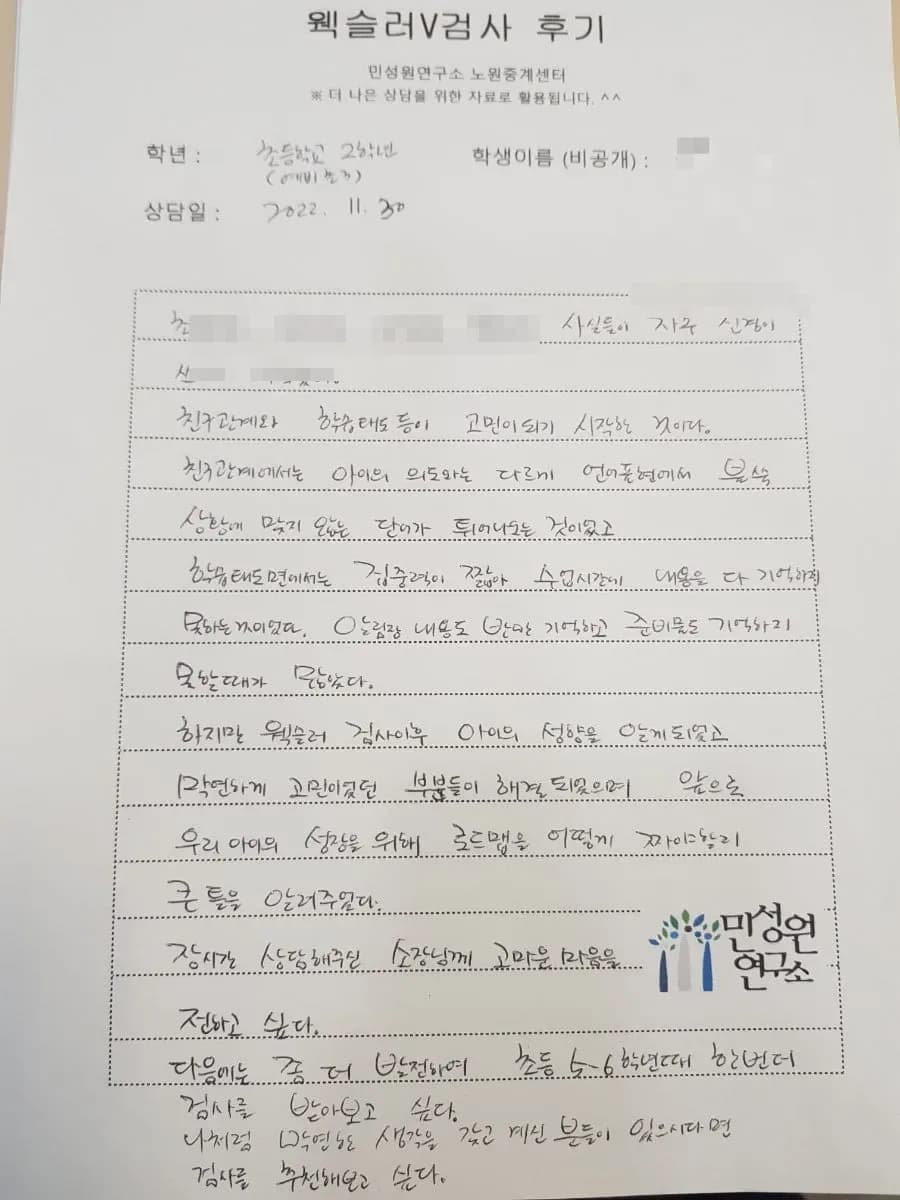 웩슬러V검사 후기
민성원연구소 노원중계센터
※ 더 나은 상담을 위한 자료로 활용됩니다. ^^
학년 : 초등학교 2학년 학생이름 (비공개) :
(예비초3)
상담일 : 2022. 11. 30
초 사실들이 자주 신경이
친구관계와 학습태도등이 고민이되기 시작한 것이다.
친구관계에서는 아이의 의도와는 다르게 언어표현에서 불쑥
상황에 맞지 않는 단어가 튀어나오는 것이었고
학습태도면에서는 집중력이 짧아 수업시간에 내용을 다 기억하지
못하는것이었다. 알림장 내용도 반만 기억하고 준비물도 기억하지
못할때가 많았다.
하지만 웩슬러 검사이후 아이의 성향을 알게되었고
막연하게 고민이었던 부분들이 해결되었으며 앞으로
우리아이의 성장을 위해 로드맵을 어떻게 짜야할지
큰 틀을 알려주었다.
장시간 상담해주신 소장님께 고마운 마음을
민성원
연구소
전하고 싶다.
다음에는 좀 더 발전하여 초등 5-6학년때 한번더
검사를 받아보고 싶다.
나처럼 막연한 생각을 갖고 계신 분들이 있으시다면
검사를 추천해보고 싶다.